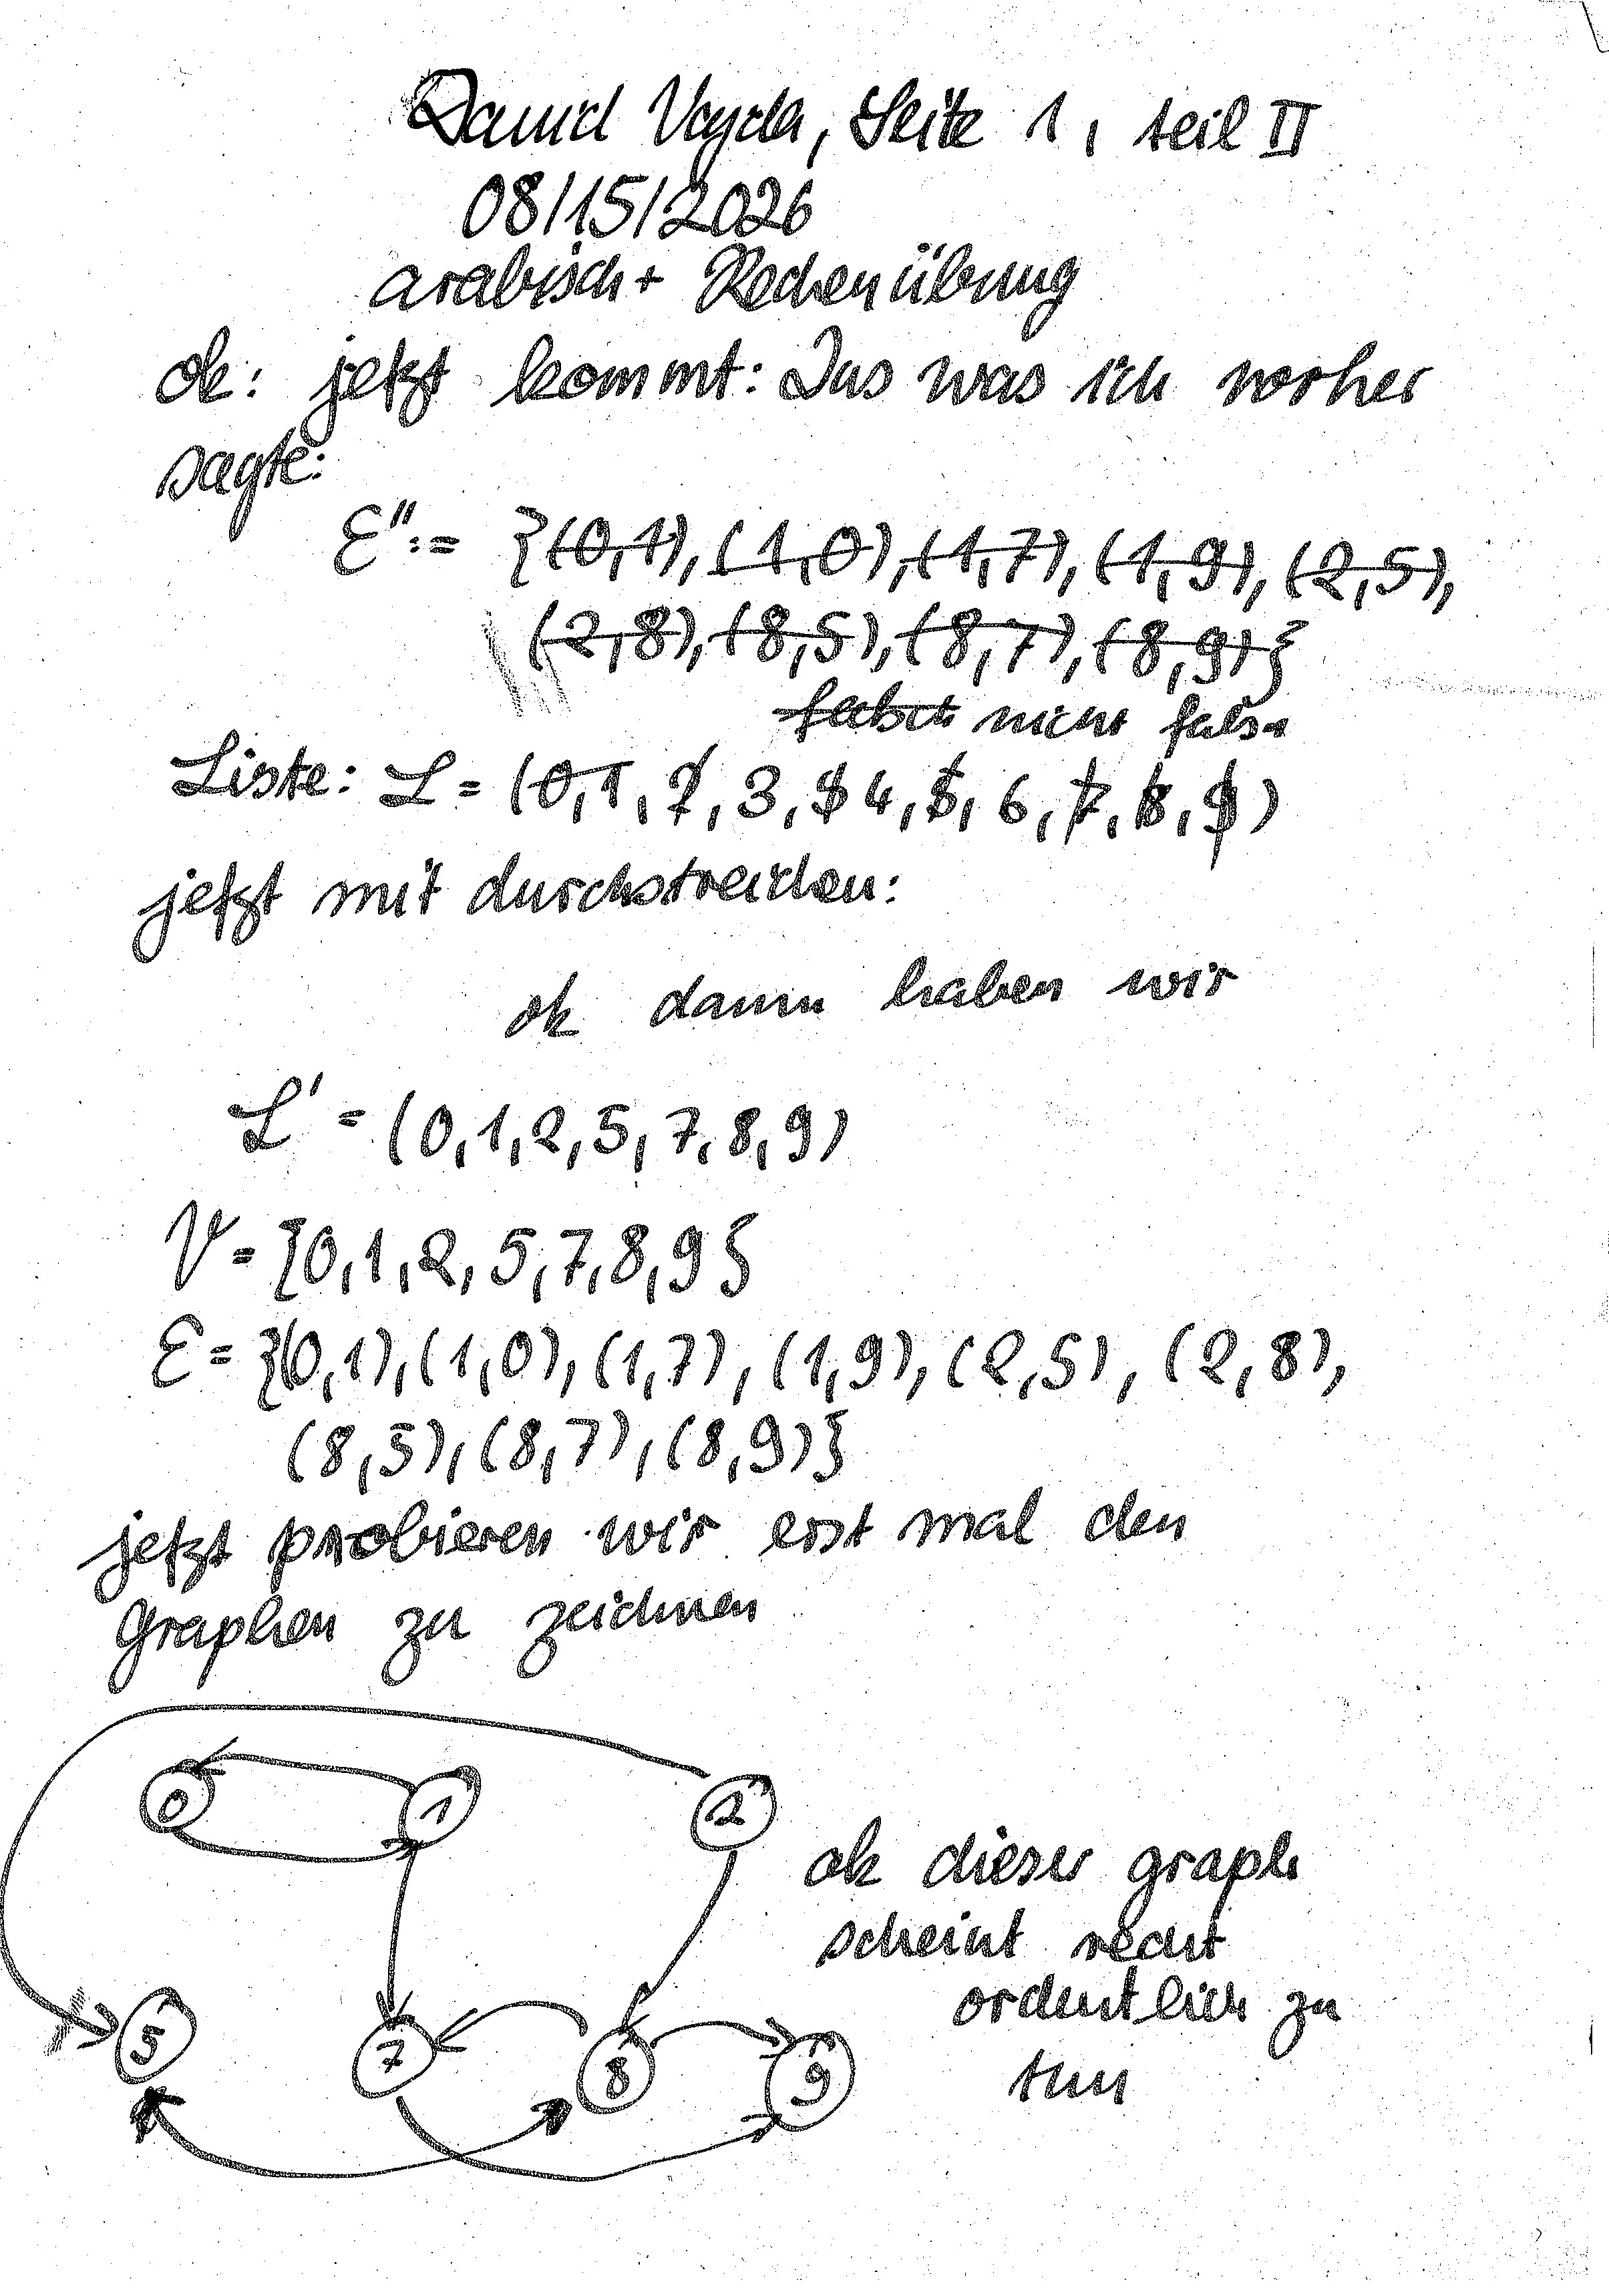 Daniel Vayda, Seite 1, teil II
08/15/2026
arabisch + Rechenübung
ok: jetzt kommt: Das was ich vorher
sagte:
E'' := {(0,1), (1,0), (1,7), (1,9), (2,5),
(2,8), (8,5), (8,7), (8,9)}
falsch nicht falsch
Liste: L = (0, 1, 2, 3, 4, 5, 6, 7, 8, 9)
jetzt mit durchstreichen:
ok dann haben wir
L' = (0, 1, 2, 5, 7, 8, 9)
V = {0, 1, 2, 5, 7, 8, 9}
E = {(0,1), (1,0), (1,7), (1,9), (2,5), (2,8),
(8,5), (8,7), (8,9)}
jetzt probieren wir erst mal den
Graphen zu zeichnen
0 1 2
ok dieser graph
scheint recht
ordentlich zu
5 7 8 9
tun